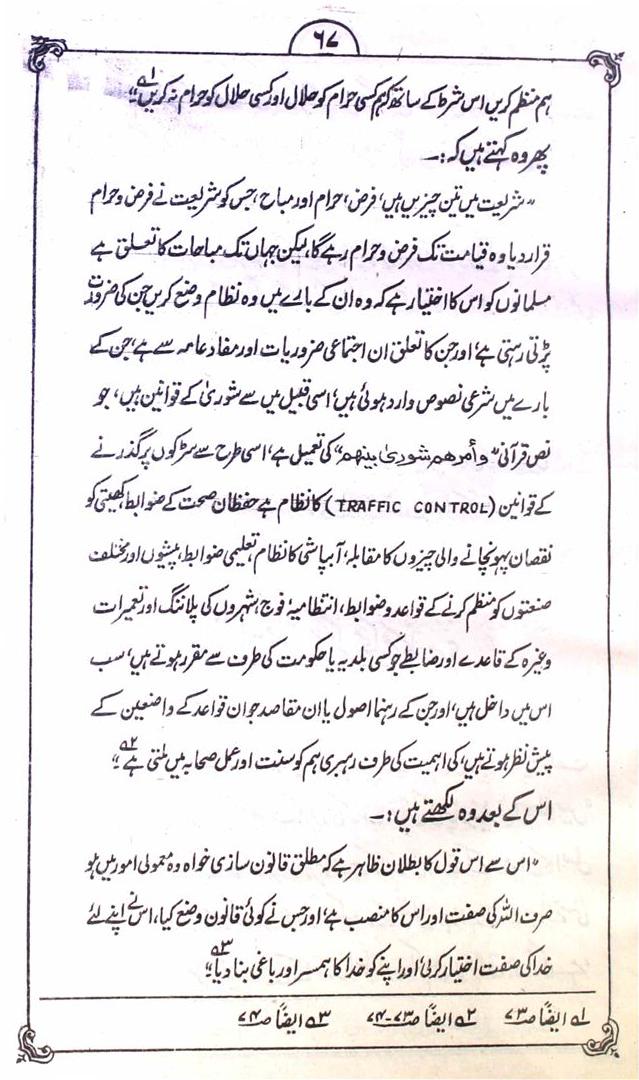 ۶۷
ہم منظم کریں اس شرط کے ساتھ کہ ہم کسی حرام کو حلال اور کسی حلال کو حرام نہ کریں ۱؎"
پھر وہ کہتے ہیں کہ :۔
"شریعت میں تین چیزیں ہیں، فرض، حرام اور مباح، جس کو شریعت نے فرض و حرام
قرار دیا وہ قیامت تک فرض و حرام رہے گا، لیکن جہاں تک مباحات کا تعلق ہے
مسلمانوں کو اس کا اختیار ہے کہ وہ ان کے بارے میں وہ نظام وضع کریں جن کی ضرورت
پڑتی رہتی ہے، اور جن کا تعلق ان اجتماعی ضروریات اور مفاد عامہ سے ہے، جن کے
بارے میں شرعی نصوص وارد ہوئی ہیں، اسی قبیل میں سے شوریٰ کے قوانین ہیں، جو
نص قرآنی "وأمرهم شورىٰ بينهم" کی تعمیل ہے، اسی طرح سے سڑکوں پر گذرنے
کے قوانین (TRAFFIC CONTROL) کا نظام ہے حفظان صحت کے ضوابط، کھیتی کو
نقصان پہونچانے والی چیزوں کا مقابلہ، آبپاشی کا نظام، تعلیمی ضوابط، پیشوں اور مختلف
صنعتوں کو منظم کرنے کے قواعد و ضوابط، انتظامیہ، فوج، شہروں کی پلاننگ اور تعمیرات
وغیرہ کے قاعدے اور ضابطے جو کسی بلدیہ یا حکومت کی طرف سے مقرر ہوتے ہیں، سب
اس میں داخل ہیں، اور جن کے رہنما اصول یا ان مقاصد جو ان قواعد کے واضعین کے
پیش نظر ہوتے ہیں، کی اہمیت کی طرف رہبری ہم کو سنت اور عمل صحابہ میں ملتی ہے ۲؎"
اس کے بعد وہ لکھتے ہیں :۔
"اس سے اس قول کا بطلان ظاہر ہے کہ مطلق قانون سازی خواہ وہ معمولی امور میں ہو
صرف اللہ کی صفت اور اس کا منصب ہے، اور جس نے کوئی قانون وضع کیا، اس نے اپنے لئے
خدا کی صفت اختیار کرلی، اور اپنے کو خدا کا ہمسر اور باغی بنا دیا ۳؎"
۱؎ ایضًا صـ۷۳ ۲؎ ایضًا صـ۷۳-۷۴ ۳؎ ایضًا صـ۷۴